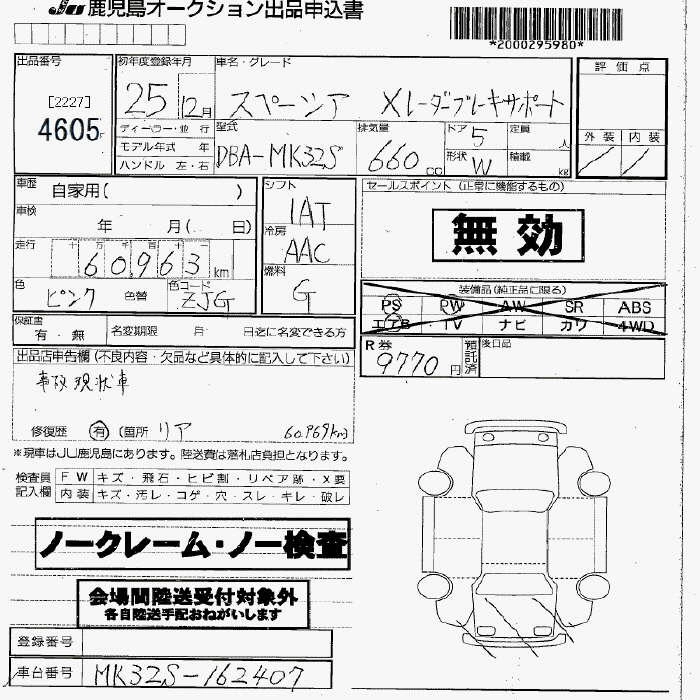 JU 鹿児島オークション出品申込書
*2000295980*
出品番号
[2227]
4605
初年度登録年月
25 12月
車名・グレード
スペーシア Xレーダーブレーキサポート
評価点
外装 内装
ディーラー・並行
モデル年式 年
ハンドル 左・右
型式
DBA-MK32S
排気量
660 cc
ドア 5
形状 W
定員 人
積載 kg
車歴 自家用( )
車検 年 月( 日)
走行 十万千百十
60963 km
色 ピンク 色替
色コード ZJG
シフト
IAT
冷房
AAC
燃料
G
セールスポイント (正常に機能するもの)
無効
装備品(純正品に限る)
PS PW AW SR ABS
エアB TV ナビ カワ 4WD
保証書 有・無
名変期限 月 日迄に名変できる方
R券 9770円 預託済
後日品
出品店申告欄(不良内容・欠品など具体的に記入して下さい)
事故現状車
修復歴 有 (箇所 リア
60,969km)
※現車はJU鹿児島にあります。陸送費は落札店負担となります。
検査員記入欄
FW キズ・飛石・ヒビ割・リペア跡・X要
内装 キズ・汚レ・コゲ・穴・スレ・キレ・破レ
ノークレーム・ノー検査
会場間陸送受付対象外
各自陸送手配おねがいします
登録番号
車台番号 MK32S-162407